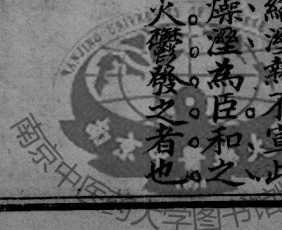 絡溼熱不宣此
燥溼為臣和之
火鬱發之者也
南京中医药大学图书馆